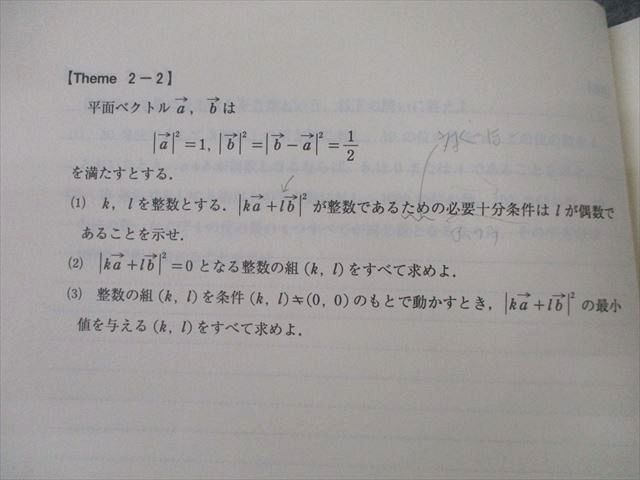 【Theme 2－2】
平面ベクトル a→, b→ は
|a→|²=1, |b→|²=|b→－a→|²=1/2
を満たすとする.
(1) k, l を整数とする. |ka→+lb→|² が整数であるための必要十分条件は l が偶数で
あることを示せ.
(2) |ka→+lb→|²=0 となる整数の組 (k, l) をすべて求めよ.
(3) 整数の組 (k, l) を条件 (k, l)≠(0, 0) のもとで動かすとき, |ka→+lb→|² の最小
値を与える (k, l) をすべて求めよ.